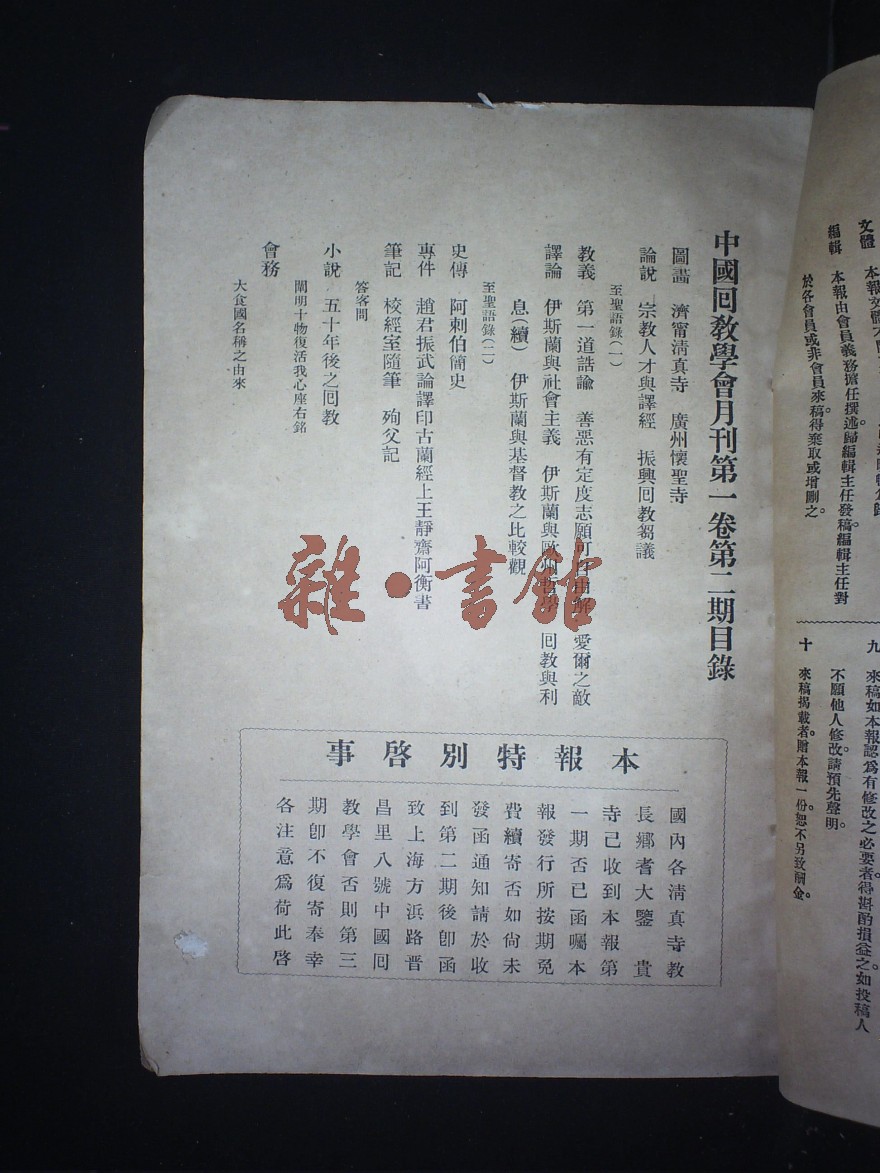 文體
編輯　本報由會員義務擔任撰述歸編輯主任發稿編輯主任對
於各會員或非會員來稿得棄取或增刪之。
九　來稿如本報認爲有修改之必要者得斟酌損益之如投稿人
不願他人修改請預先聲明。
十　來稿揭載者贈本報一份恕不另致酬金。
中國回教學會月刊第一卷第二期目錄
圖畫　濟甯清真寺　廣州懷聖寺
論說　宗教人才與譯經　振興回教芻議
至聖語錄(一)
教義　第一道誥諭　善惡有定度志願可自由解　愛爾之敵
譯論　伊斯蘭與社會主義　伊斯蘭與歐州哲學　回教與利
息(續)　伊斯蘭與基督教之比較觀
至聖語錄(二)
史傳　阿刺伯簡史
專件　趙君振武論譯印古蘭經上王靜齋阿衡書
筆記　校經室隨筆　殉父記
答客問
小說　五十年後之回教
闡明十物復活我心座右銘
會務
大食國名稱之由來
本報特別啓事
國內各淸真寺教
長鄉耆大鑒　貴
寺已收到本報第
一期否已函囑本
報發行所按期免
費續寄否如尙未
發函通知請於收
到第二期後卽函
致上海方浜路晋
昌里八號中國回
教學會否則第三
期卽不復寄奉幸
各注意爲荷此啓
雜·書館